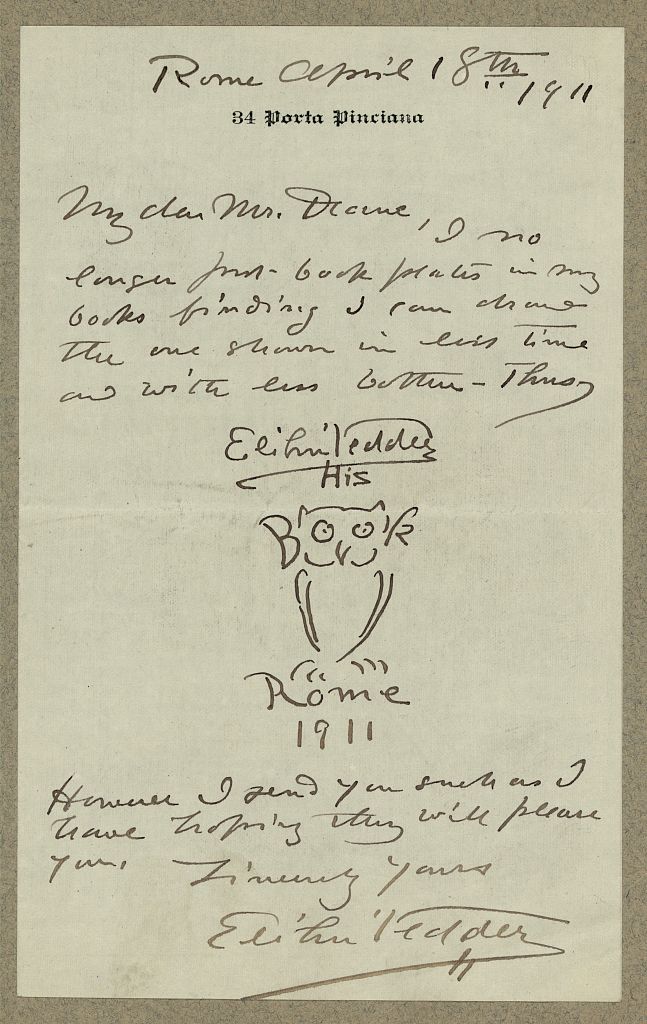 Rome April 18th 1911
34 Porta Pinciana
My dear Mr. Deane, I no
longer put book plates in my
books finding I can draw
the one shown in less time
and with less bother - Thus
Elihu Vedder
His
Book
Rome
1911
However I send you such as I
have hoping they will please
you. Sincerely Yours
Elihu Vedder